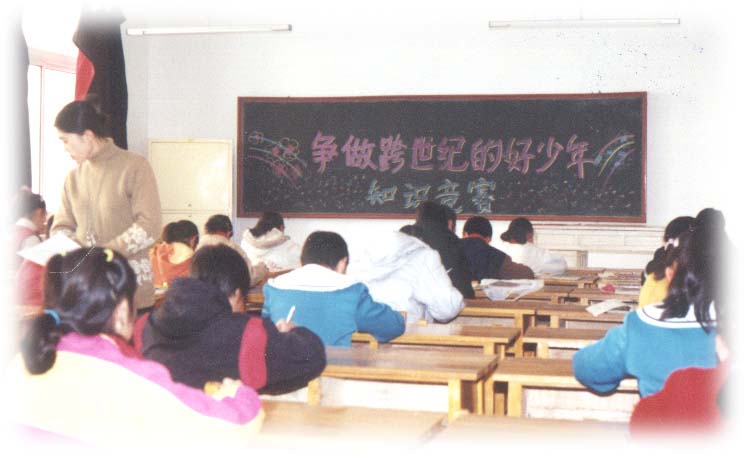 争做跨世纪的好少年
知识竞赛